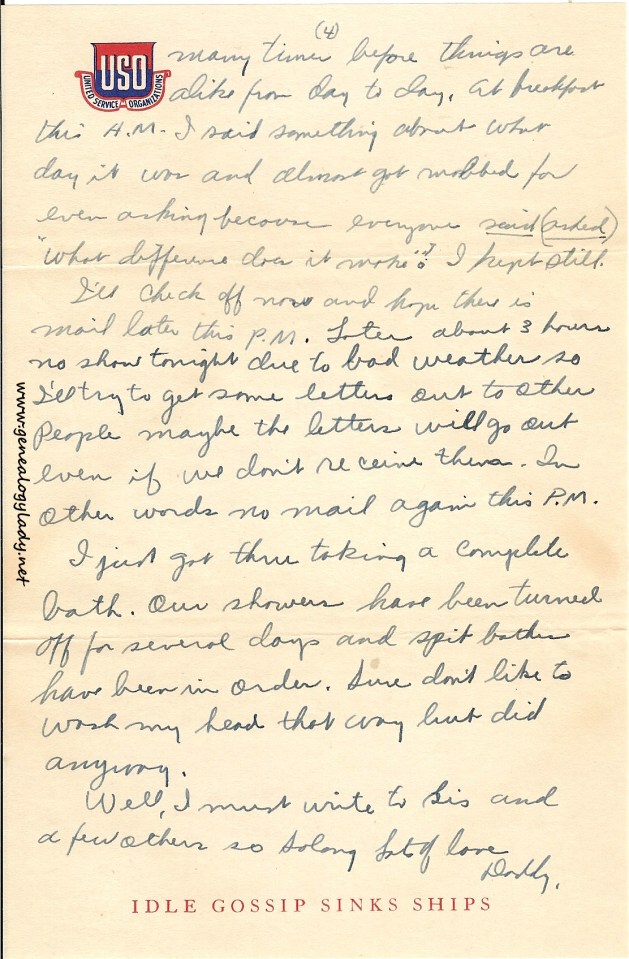 (4)
USO
UNITED SERVICE ORGANIZATIONS
many times before things are
alike from day to day. At breakfast
this A.M. I said something about what
day it was and almost got mobbed for
even asking because everyone said (asked)
"What difference does it make"? I kept still.
I'll check off now and hope there is
mail later this P.M. Later about 3 hours
no show tonight due to bad weather so
I'll try to get some letters out to other
People maybe the letters will go out
even if we don't receive them. In
other words no mail again this P.M.
I just got thru taking a complete
bath. Our showers have been turned
off for several days and spit baths
have been in order. Sure don't like to
wash my head that way but did
anyway.
Well, I must write to Sis and
a few others so solong Lots of love
Daddy.
IDLE GOSSIP SINKS SHIPS
www.genealogylady.net